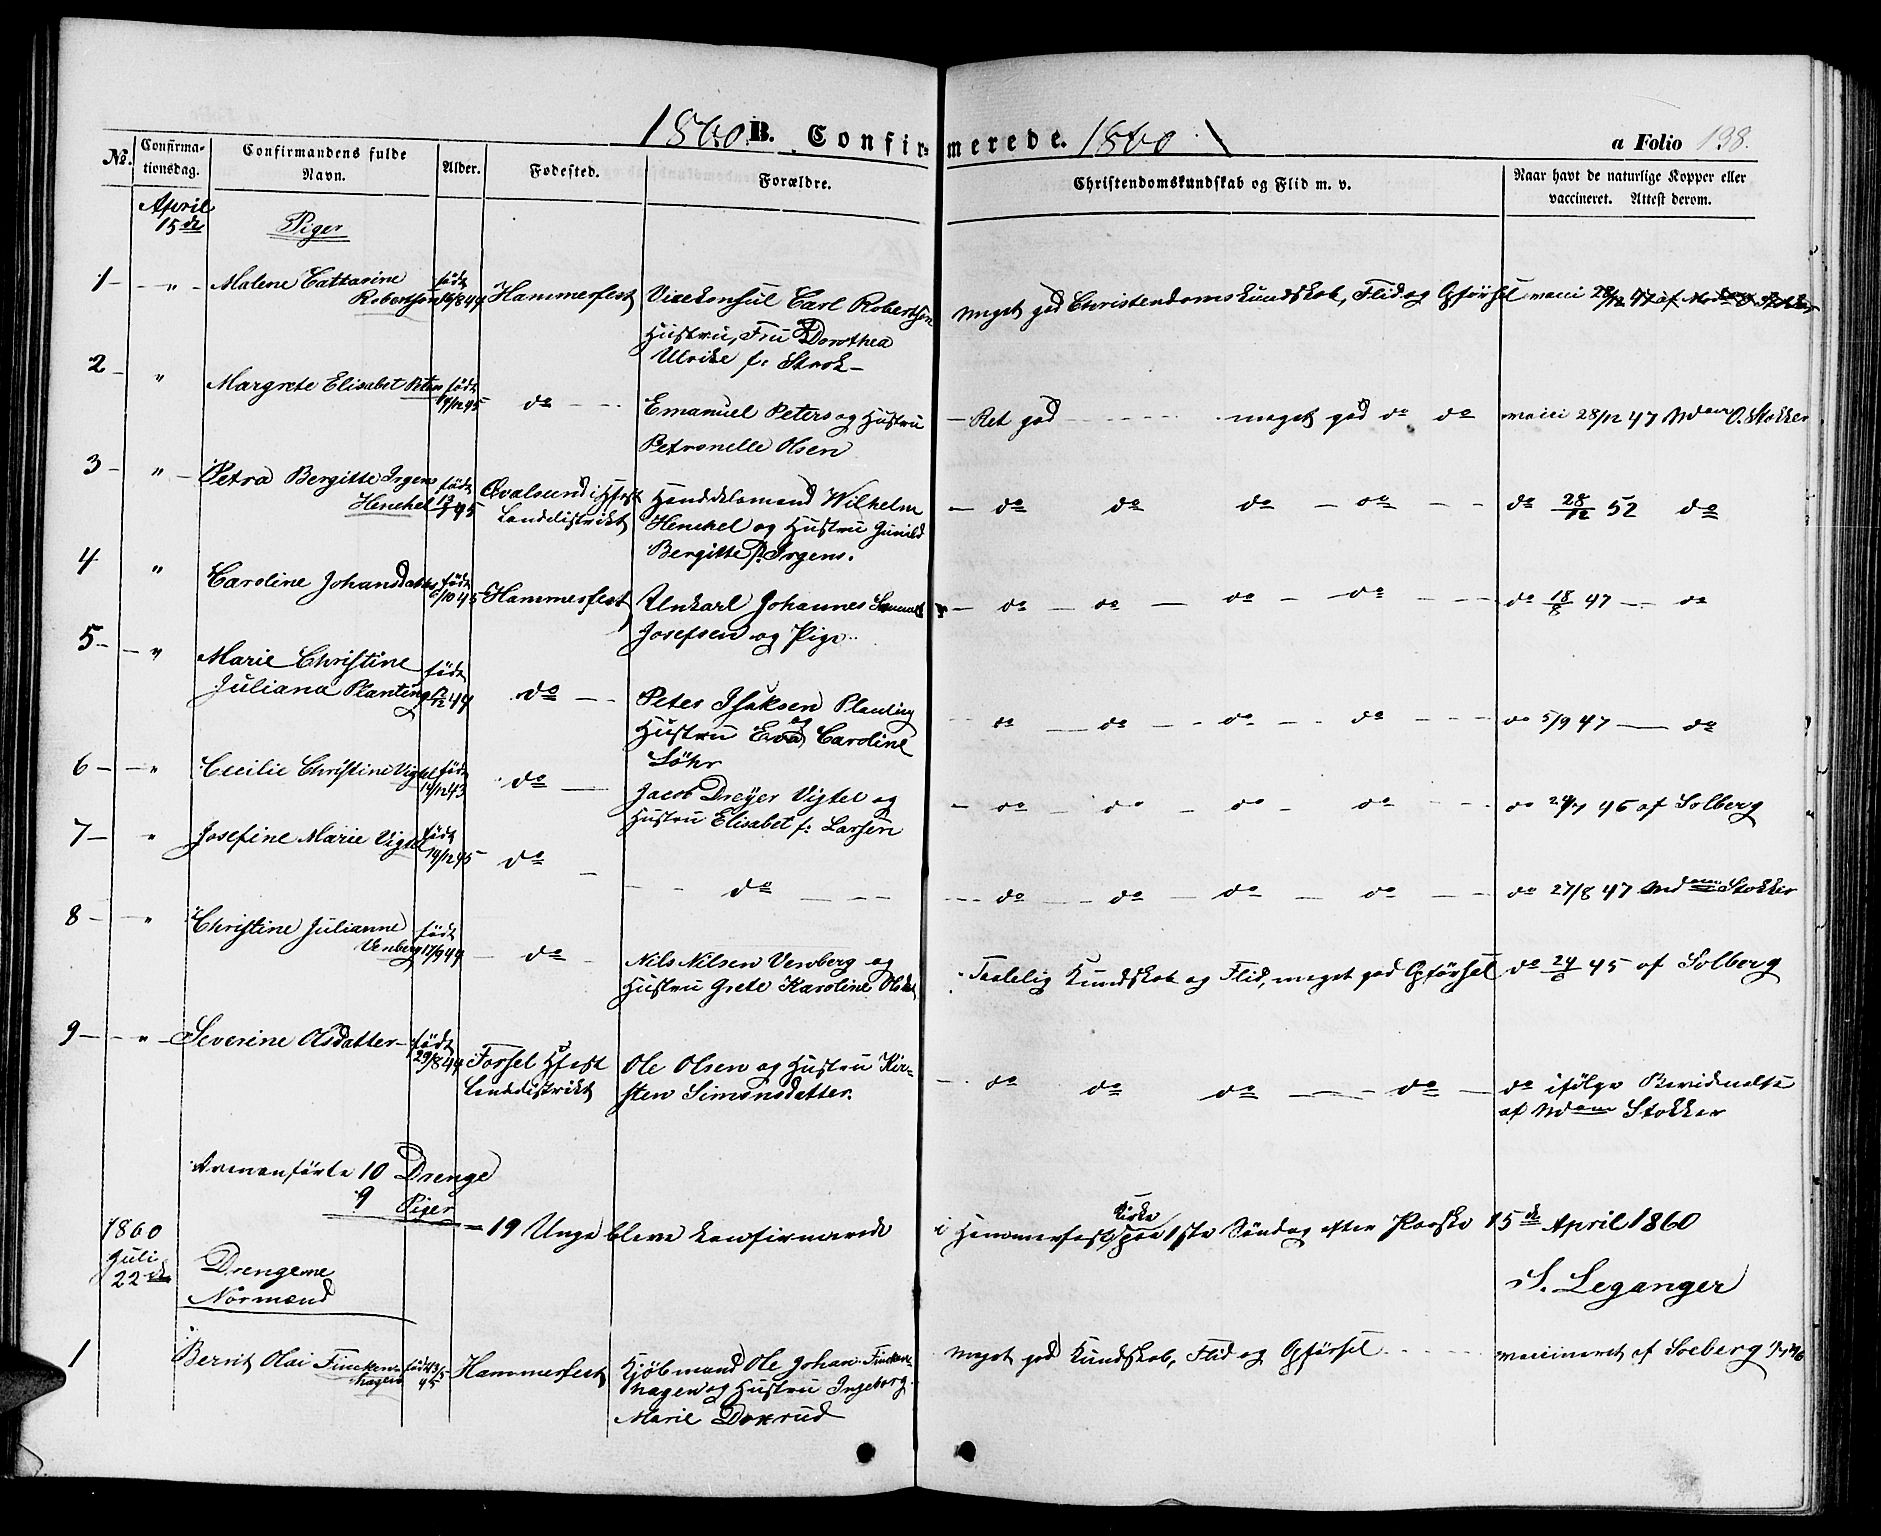 1860. B. Confirmerede. 1860
a Folio 198.
No. Confirmationsdag. Confirmandens fulde Navn. Alder. Fødested. Forældre. Christendomskundskab og Flid m. v. Naar havt de naturlige Kopper eller vaccineret. Attest derom.
April
15de Piger
1 – " – Malene Cattarine
Robertson født 16/8 44 Hammerfest Vicekonsul Carl Robertson
og Hustru, Fru Dorothea
Ulrike f: Strok –
Meget god Christendomskundskab, Flid og Opførsel vacci 28/12 47 af
2 – " Margrete Elisabet Peters født 14/12 45 do – Emanuel Peters og Hustru
Petronelle Olsen
– Ret god – meget god do do vacci 28/12 47 Mdam O. Stokker
3 – " – Petra Bergitte Irgens
Henckel født 45 Qvalsund i Hfest
Landdistrikt Handelsmand Wilhelm
Henckel og Hustru Gunild
Bergitte f. Irgens.
– do do do – do – – do 28/12 52 do
4 " Caroline Johansdatter født /10 45 Hammerfest Unkarl Johannes
Josefsen og Pige
– do – do – do – do – – do 18/8 47 – do
5 – – " Marie Christine
Juliana Planting født 44 do – Peter Isaksen Planting
og Hustru Eva Caroline
Löhr
do – do – do – do – do 5/9 47 – do
6 – – " Cecilie Christine Vigtel født 14/12 43 do – Jacob Dreyer Vigtel og
Hustru Elisabet f: Larsen
– do – do – do – do – do 46 af Solberg
7 – " Josefine Marie Vigtel født 19/12 45 do – – do – –
do – do – do – do – do 27/8 47 Mdam Stokker
8 – – " Christine Julianne
Venberg født 17/9 44 – do – Nils Nilsen Venberg og
Hustru Grete Karoline Olsdat
Taalelig Kundskab og Flid, meget god Opførsel do 45 af Solberg
9 – – " – Severine Olsdatter – født 29/8 44 Forsøl Hfest
Landdistrikt Ole Olsen og Hustru Kir-
sten Simonsdatter.
– do do do – do – do ifølge Bevidnelse
af Mdam Stokker
Ovenanførte 10 Drenge
9 Piger
= 19 Unge bleve konfirmerede i Hammerfest Kirke paa 1ste Søndag efter Paaske 15de April 1860
S. Leganger
1860
Juli
22de Drengerne
Normænd
1 Bernt Olai Fincken-
hagen født 13/5 45 Hammerfest Kjøbmand Ole Johan Fincken-
hagen og Hustru Ingeborg
Marie Doxrud
Meget god Kundskab, Flid og Opførsel – vaccineret af Solberg